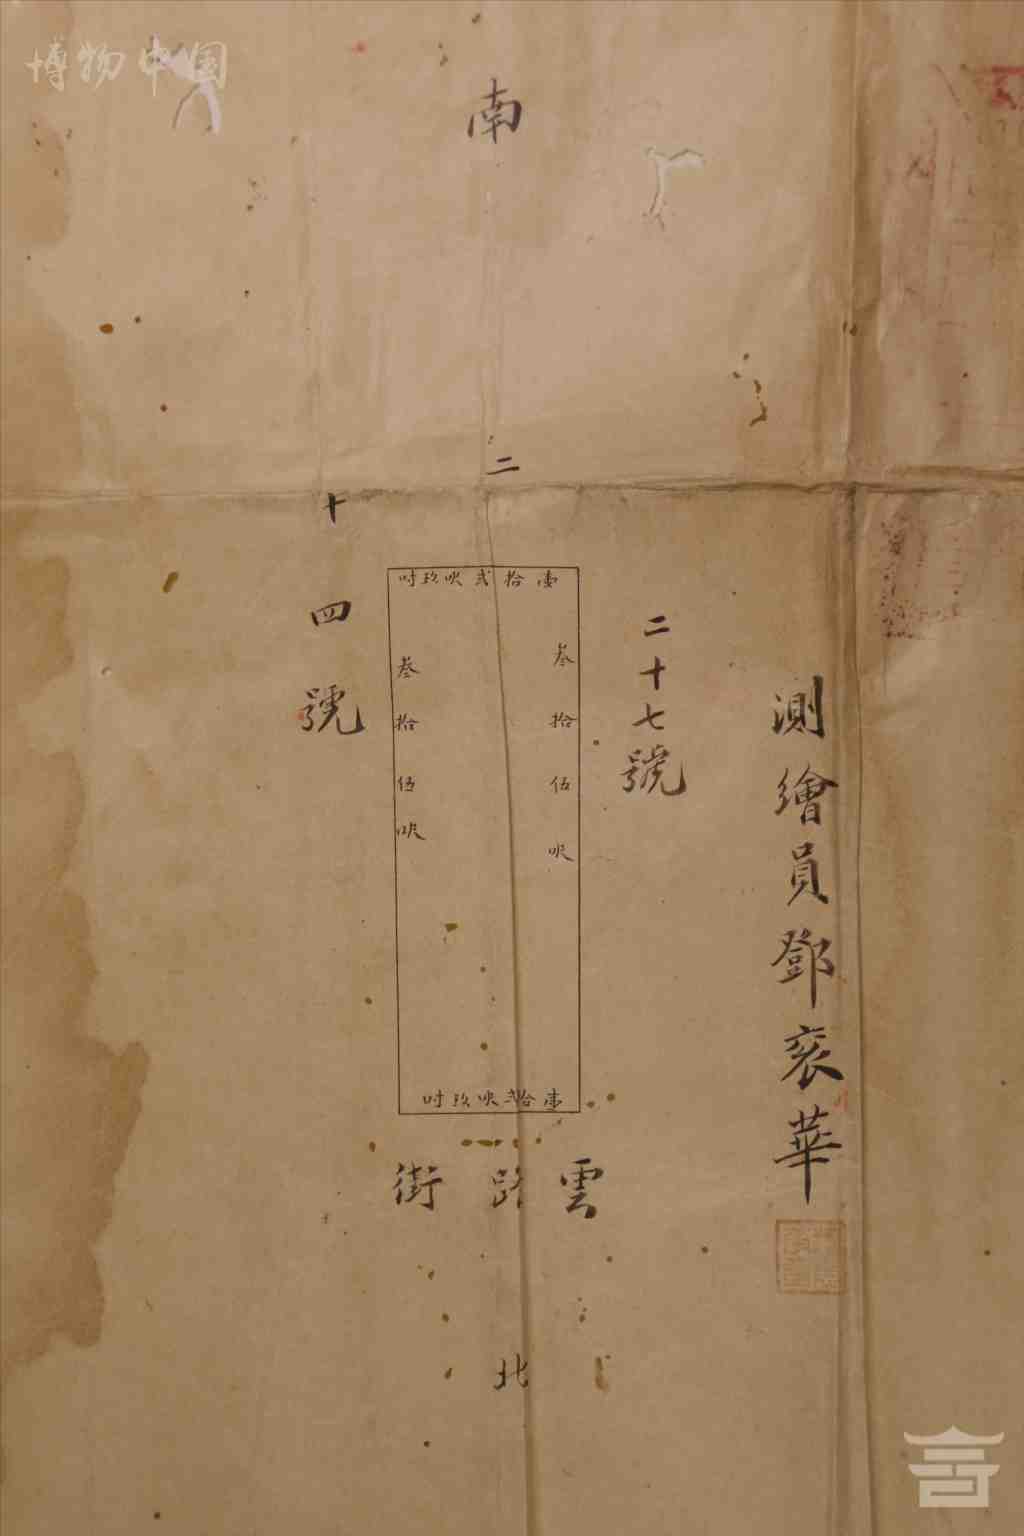 博物中国
南
測繪員鄧袞華
二十七號
二
十四號
壹拾弍呎玖吋
叁拾伍呎
叁拾伍呎
壹拾弍呎玖吋
雲路街
北